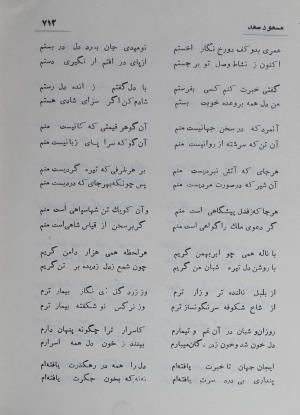 مسعود سعد
۷۱۳
عمری بدو کف دورخ نگار اخستم نومیدی جان بارد دل در بستم
اکنون ز نشاط وصل تو برجستم ازپای در افتم ار نگیری دستم
گفتی خبرت کنم کسی بفرستم با دل گفتم زانده دل رستم
من دل همه بروعده خویت بستم شادم کن اگر سزای شادی هستم
آنمرد که در سخن جهانیست منم آن گوهر قیمتی که کانیست منم
آن تن که سرشته از روانیست منم آن گو که سراپای زبانیست منم
هرجای که آتش نبردیست منم بر هر طرفی که تیره گردیست منم
آن شیر که درصورت مردیست منم پس چونکه بهرجای که دردیست منم
هرجا که فضل پیشگاهی است منم وآن کو یک تن سپاهی است منم
گر دعوی ملک را گواهی است منم گر برسخن از قیاس شاهی است منم
با ناله همی چو ابر بهمن گریم هر لحظه همی هزار دامن گریم
با روشن دل تیره شبان من گریم چون شمع زدل زدیده بر تن گریم
از بلبل نالنده تر و زار ترم وز زرد گل ای نگار بیمار ترم
از شاخ شکوفه سرنگونسار ترم وز نرگس نوشکفته بیدار ترم
روزان و شبان در آن غم و تیمارم کاسرار ترا چگونه پنهان دارم
دل خون شد و خون زدیدگان میبارم بینند ز خون دل همه اسرارم
ایجان جهان تا خبرت یافته‌ام دل را همه در رهگذرت یافته‌ام
پنداری بی درد سرت یافته‌ام نه نه که بخون جگرت یافته‌ام